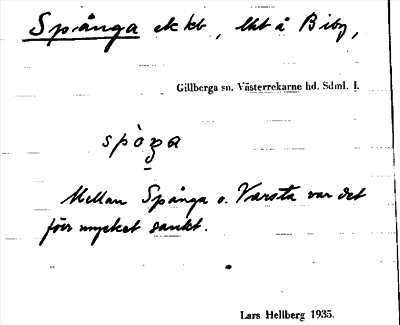 Spånga ek kt, lht å Biby,
Gillberga sn. Västerrekarne hd. Sdml. l.
Mellan Spånga o. Varsta var det
förr mycket sankt.
Lars Hellberg 1935.